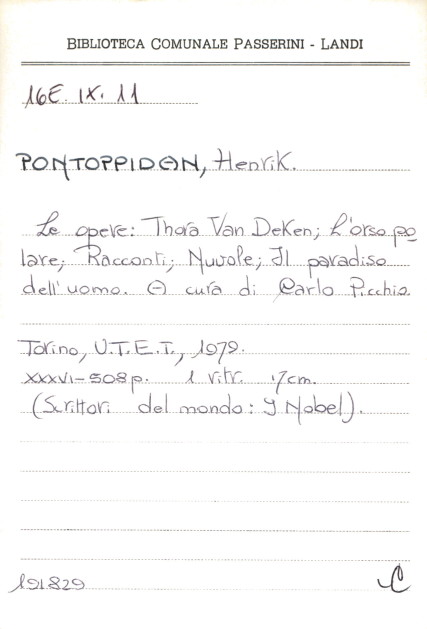 BIBLIOTECA COMUNALE PASSERINI - LANDI
16E. IX. 11
PONTOPPIDAN, Henrik.
Le opere: Thora Van Deken; L'orso po
lare; Racconti; Nuvole; Il paradiso
dell'uomo. A cura di Carlo Picchio.
Torino, U.T.E.T., 1979.
XXXVI-508 p. 1 ritr. 17cm.
(Scrittori del mondo: I Nobel).
191829
C